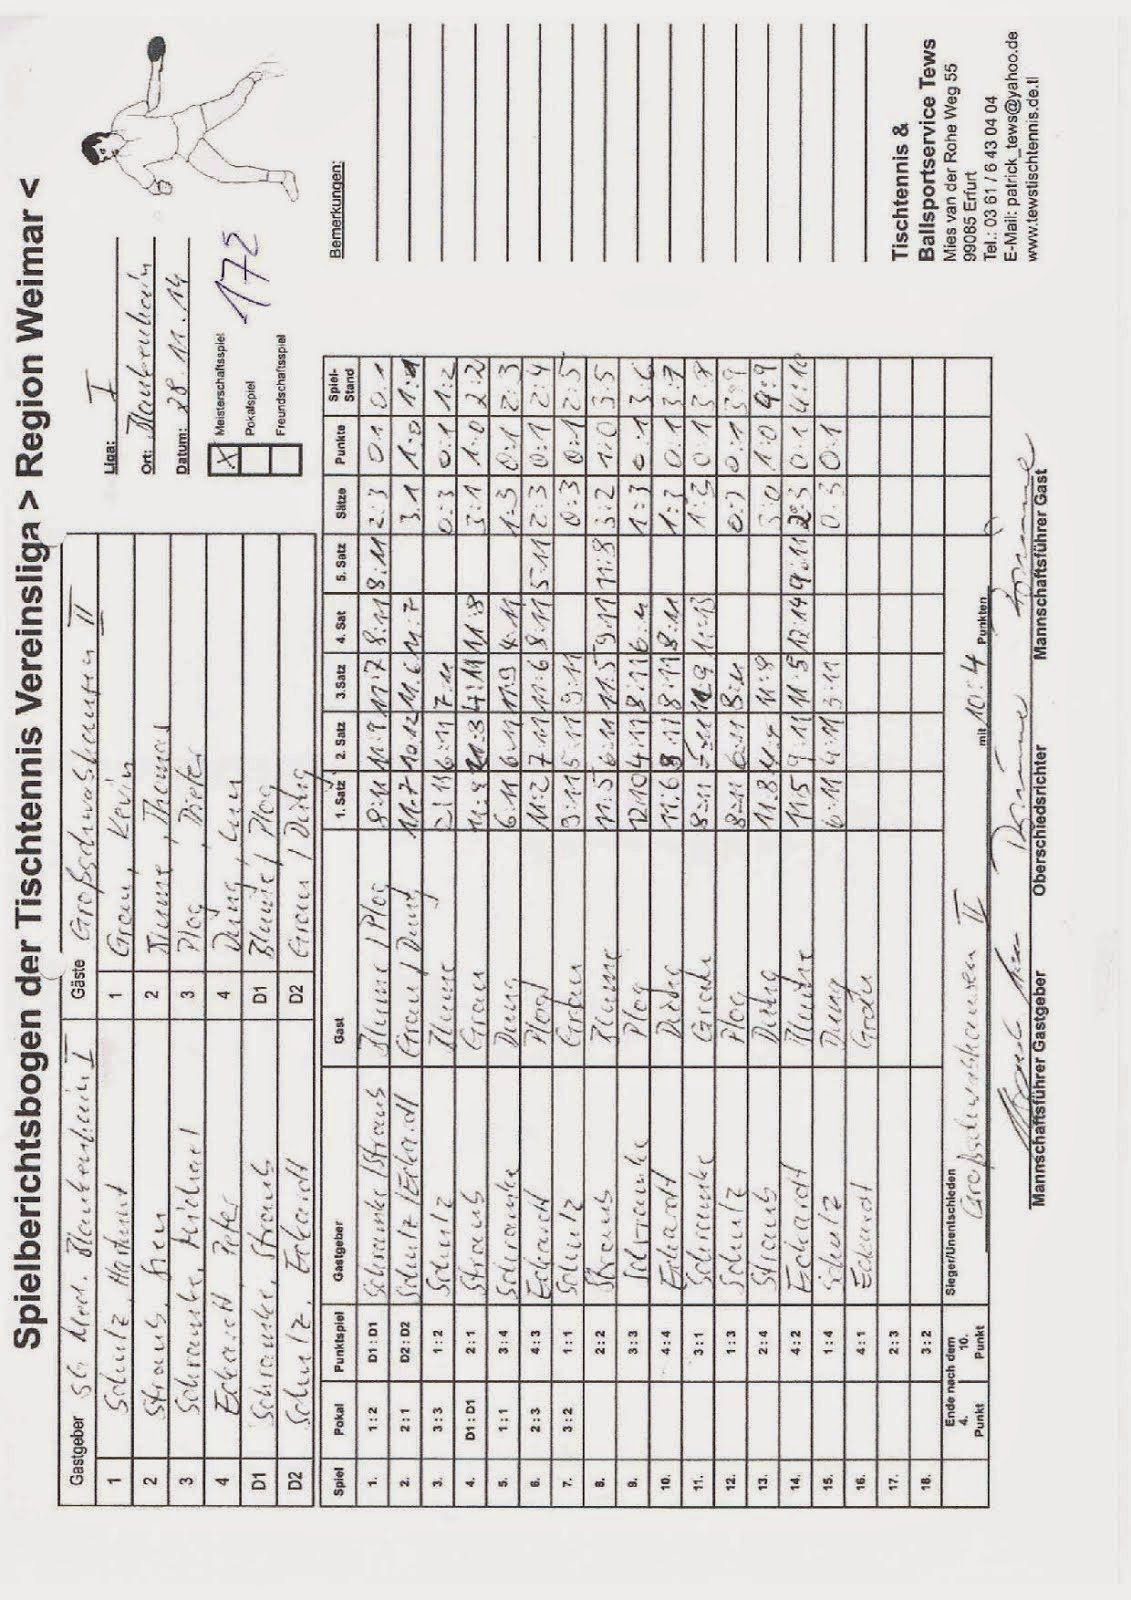 Spielberichtsbogen der Tischtennis Vereinsliga > Region Weimar <
Gastgeber Blankenhain I Gäste Großschwabhausen II
1 Schulz, Hartmut 1 Grau, Kevin
2 Straub, Sven 2 Blume, Thomas
3 Schramke, Michael 3 Plog, Dieter
4 Eckardt, Peter 4
D1 Schramke, Straub D1 Blume / Plog
D2 Schulz, Eckardt D2 Grau /
Liga: I
Ort: Blankenhain
Datum: 28.11.14
X Meisterschaftsspiel
Pokalspiel
Freundschaftsspiel
172
Spiel Pokal Punktspiel Gastgeber Gast 1. Satz 2. Satz 3. Satz 4. Sat 5. Satz Sätze Punkte Spiel-Stand
1. 1 : 2 D1 : D1 Schramke / Straub Blume / Plog 8:11 11:9 11:7 8:11 8:11 2:3 0:1 0:1
2. 2 : 1 D2 : D2 Schulz / Eckardt Grau / 11:7 10:12 11:6 11:7 3:1 1:0 1:1
3. 3 : 3 1 : 2 Schulz Blume 2:11 6:11 7:11 0:3 0:1 1:2
4. D1 : D1 2 : 1 Straub Grau 11:3 11:8 3:1 1:0 2:2
5. 1 : 1 3 : 4 Schramke 6:11 6:11 11:9 4:11 1:3 0:1 2:3
6. 2 : 3 4 : 3 Eckardt Plog 11:2 7:11 11:6 8:11 5:11 2:3 0:1 2:4
7. 3 : 2 1 : 1 Schulz Grau 3:11 5:11 9:11 0:3 0:1 2:5
8. 2 : 2 Straub Blume 11:5 6:11 11:5 9:11 11:8 3:2 1:0 3:5
9. 3 : 3 Schramke Plog 12:10 4:11 8:11 6:11 1:3 0:1 3:6
10. 4 : 4 Eckardt 11:6 8:11 8:11 8:11 1:3 0:1 3:7
11. 3 : 1 Schramke Grau 8:11 11:9 11:13 1:3 0:1 3:8
12. 1 : 3 Schulz Plog 8:11 6:11 8:11 0:3 0:1 3:9
13. 2 : 4 Straub 11:8 11:8 3:0 1:0 4:9
14. 4 : 2 Eckardt Blume 11:5 9:11 11:5 12:14 9:11 2:3 0:1 4:10
15. 1 : 4 Schulz 6:11 4:11 3:11 0:3 0:1
16. 4 : 1 Eckardt Grau
17. 2 : 3
18. 3 : 2
Ende nach dem
4. Punkt 10. Punkt
Sieger/Unentschieden Großschwabhausen II mit 10:4 Punkten
Mannschaftsführer Gastgeber Oberschiedsrichter Mannschaftsführer Gast
Bemerkungen:
Tischtennis &
Ballsportservice Tews
Mies van der Rohe Weg 55
99085 Erfurt
Tel.: 03 61 / 6 43 04 04
E-Mail: patrick_tews@yahoo.de
www.tewstischtennis.de.tl